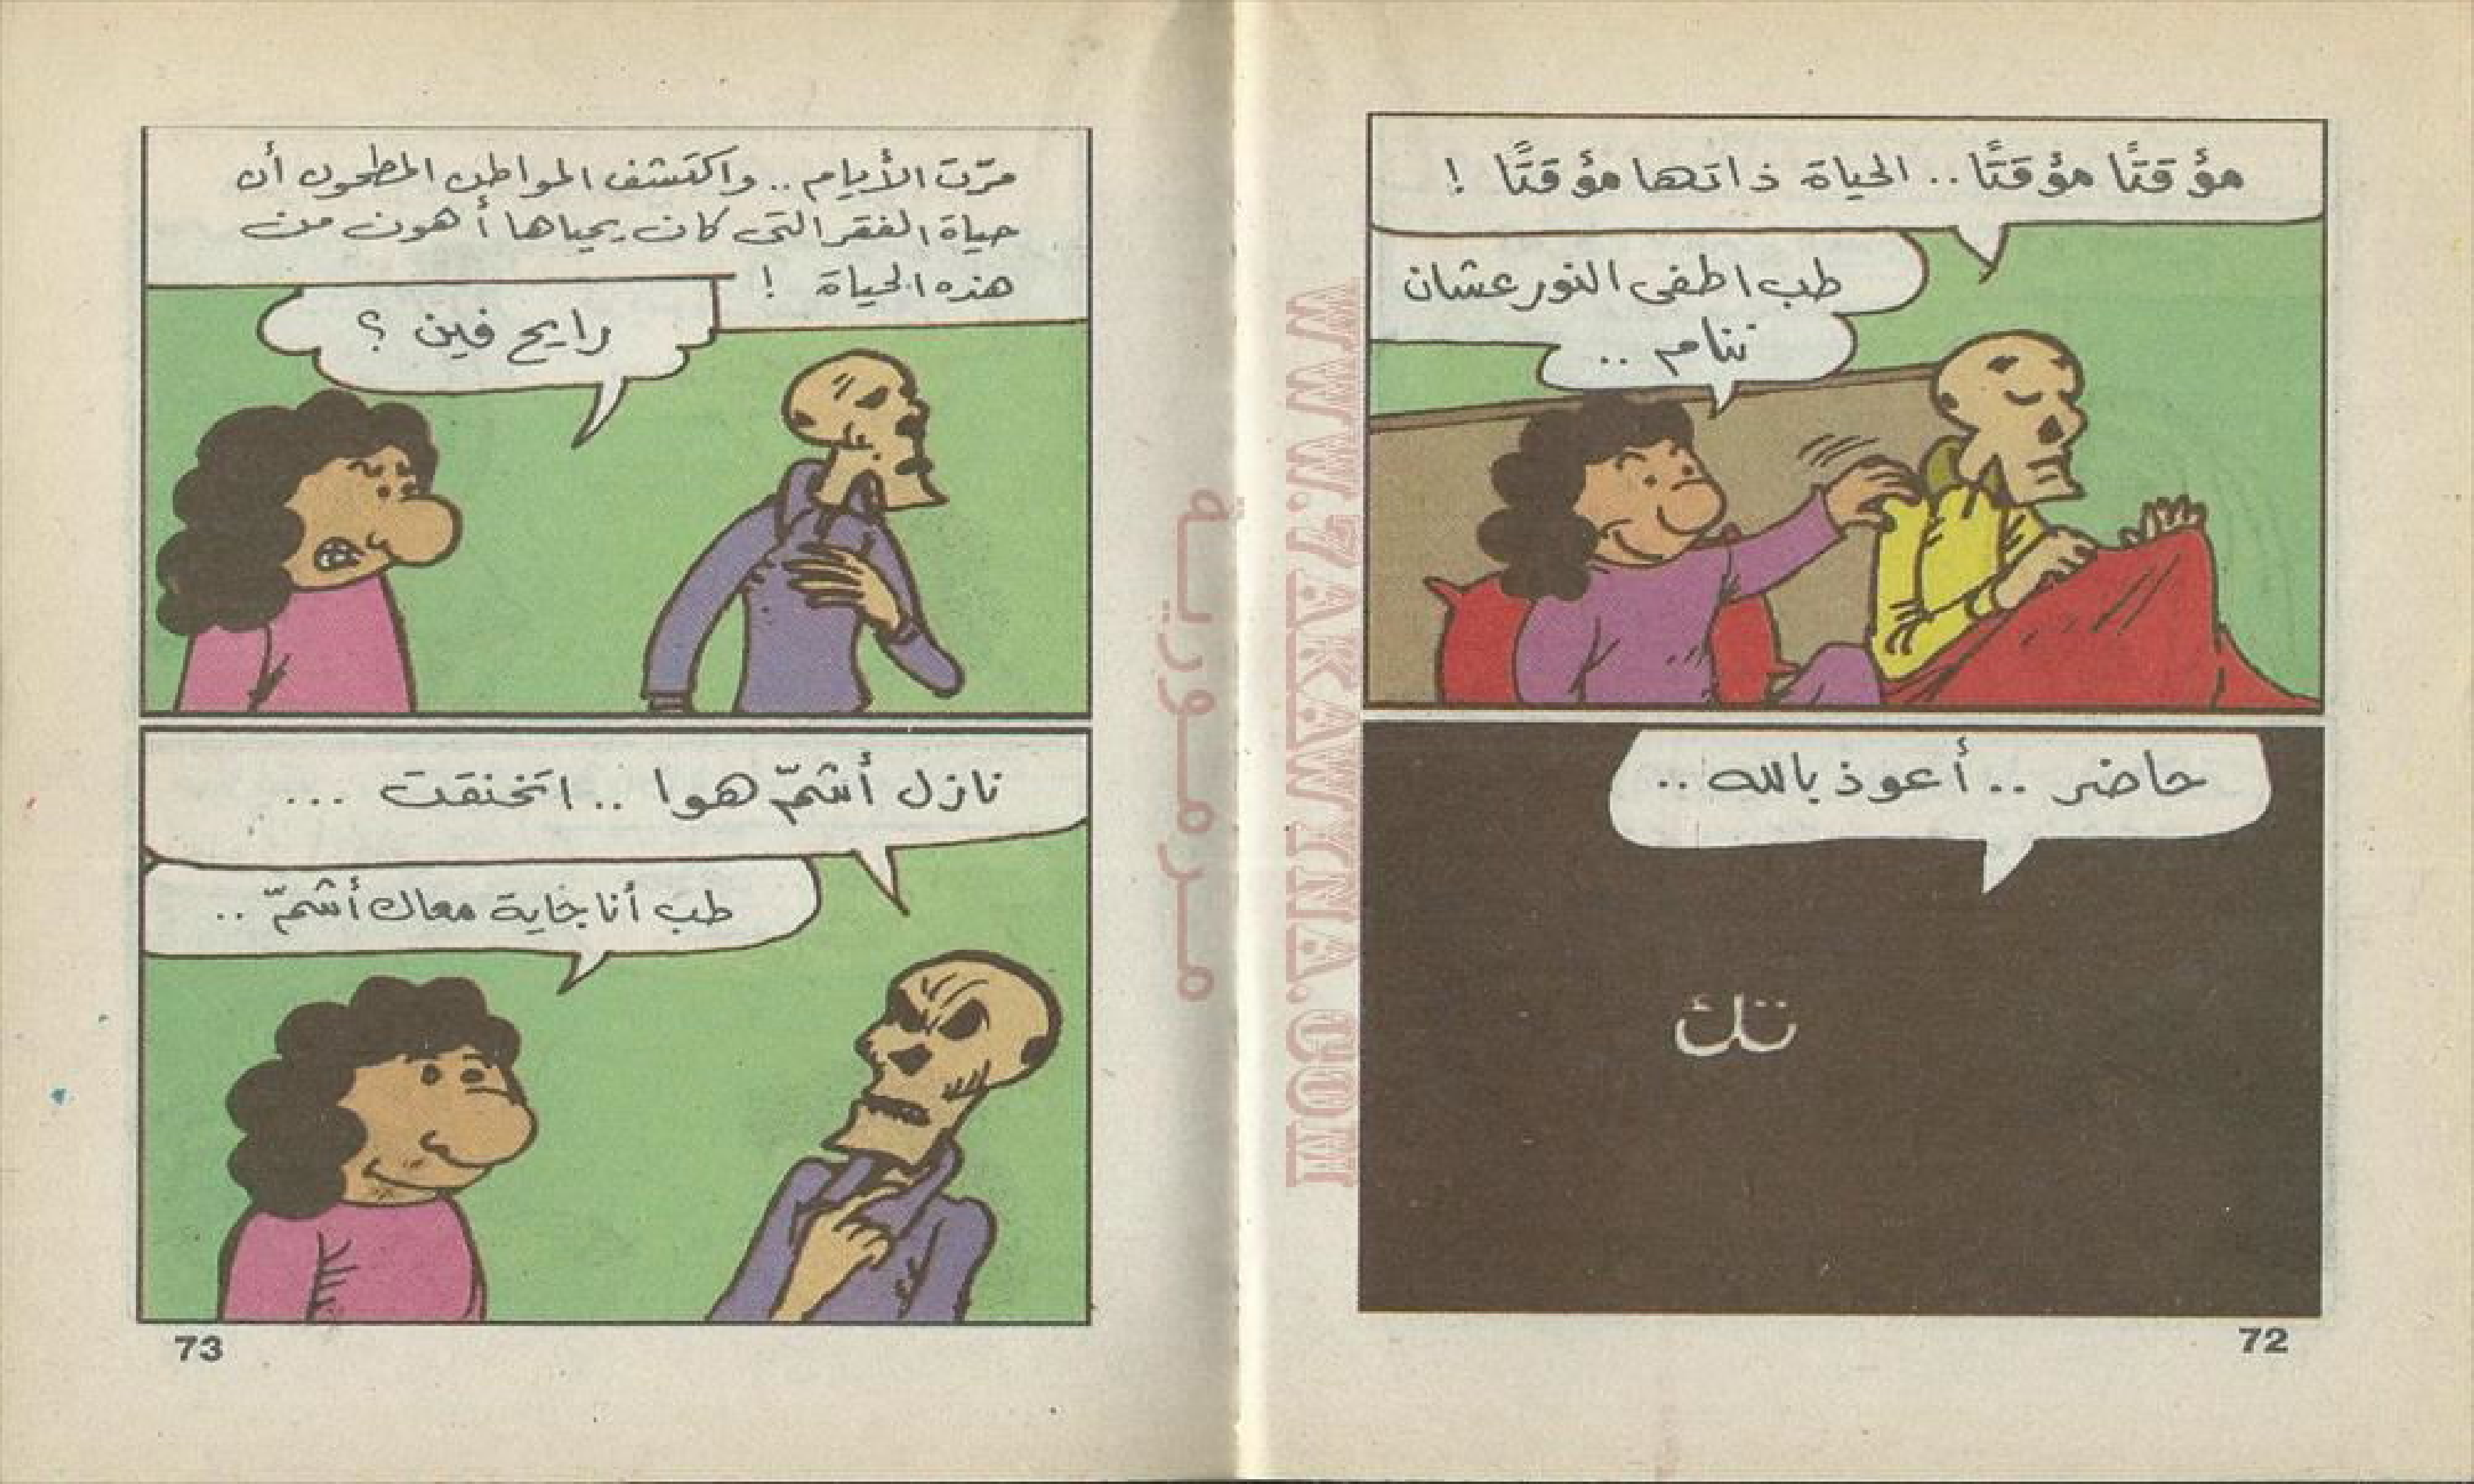 مؤقتًا مؤقتًا .. الحياة ذاتها مؤقتًا !
طب اطفى النور عشان
ننام ..
حاضر .. أعوذ بالله ..
تك
72
مرّت الأيام .. واكتشف المواطن المطحون أن
حياة الفقر التى كان يحياها أهون من
هذه الحياة !
رايح فين ؟
نازل أشمّ هوا .. اتخنقت ...
طب أنا جاية معاك أشمّ ..
73
WWW.ZAKEWINNA.COM